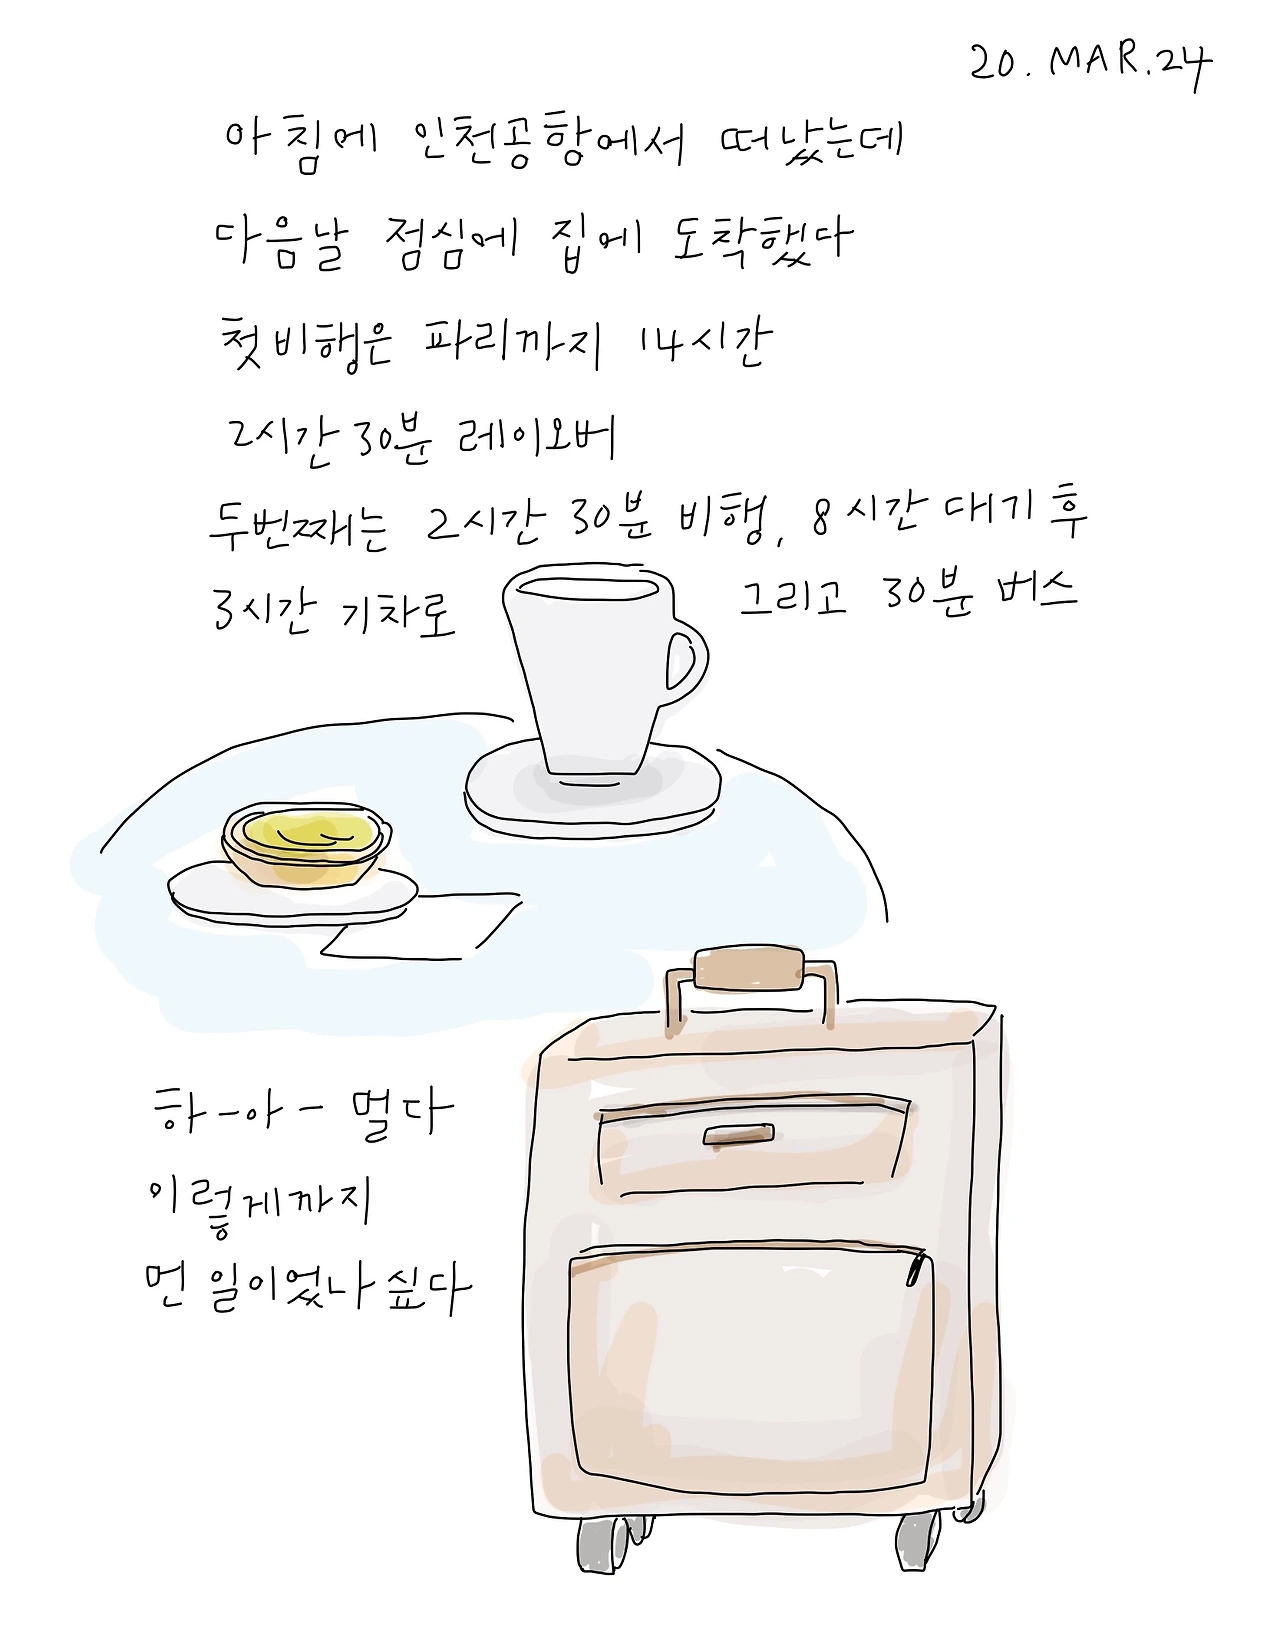 20. MAR. 24
아침에 인천공항에서 떠났는데
다음날 점심에 집에 도착했다
첫비행은 파리까지 14시간
2시간 30분 레이오버
두번째는 2시간 30분 비행, 8시간 대기 후
3시간 기차로 그리고 30분 버스
하-아- 멀다
이렇게까지
먼 일이었나 싶다